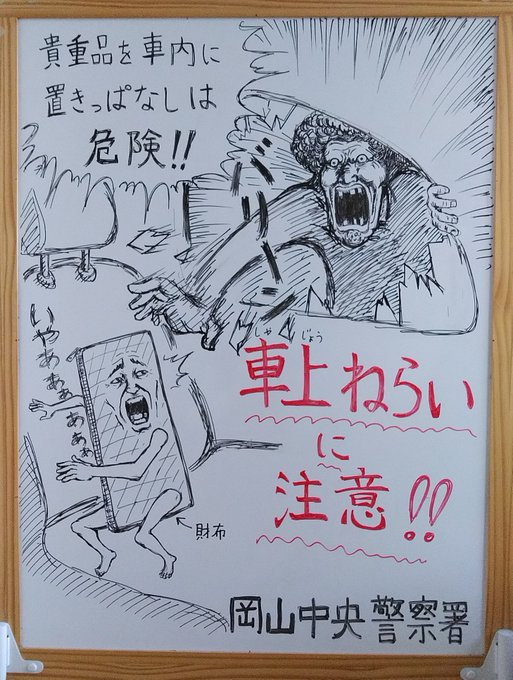 貴重品を車内に
置きっぱなしは
危険!!
バリーン
いやあああぁあぁぁ
しゃ じょう
車上ねらい
に
注意!!
財布
岡山中央警察署